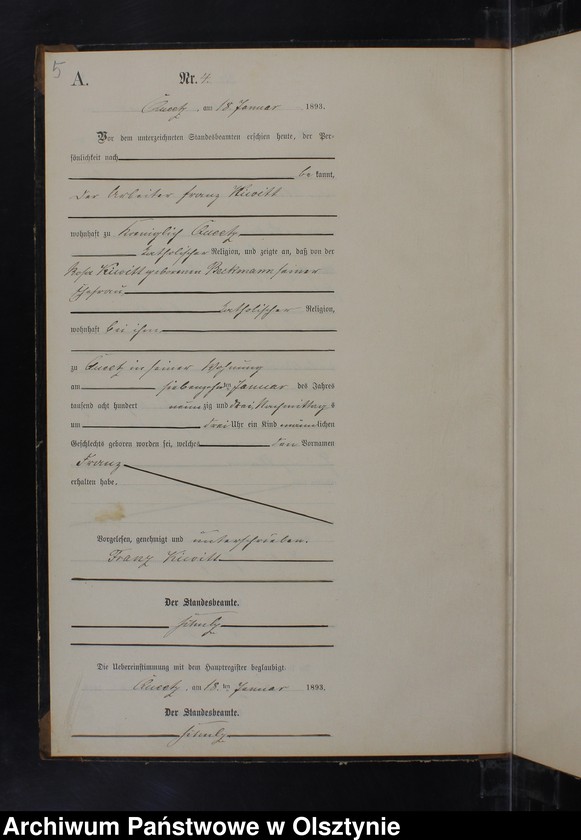 5
A.
Nr. 4.
Queetz, am 18 Januar 1893.
Vor dem unterzeichneten Standesbeamten erschien heute, der Per-
sönlichkeit nach
be kannt,
der Arbeiter Franz Kuwitt
wohnhaft zu Koeniglich Queetz
katholischer Religion, und zeigte an, daß von der
Rosa Kuwitt geborenen Beckmann seiner
Ehefrau
katholischer Religion,
wohnhaft bei ihm
zu Queetz in seiner Wohnung
am siebenzehnten Januar des Jahres
tausend acht hundert neunzig und drei Nachmittags
um drei Uhr ein Kind männlichen
Geschlechts geboren worden sei, welches den Vornamen
Franz
erhalten habe.
Vorgelesen, genehmigt und unterschrieben.
Franz Kuwitt
Der Standesbeamte.
Die Uebereinstimmung mit dem Hauptregister beglaubigt.
Queetz, am 18. ten Januar 1893.
Der Standesbeamte.
Archiwum Państwowe w Olsztynie